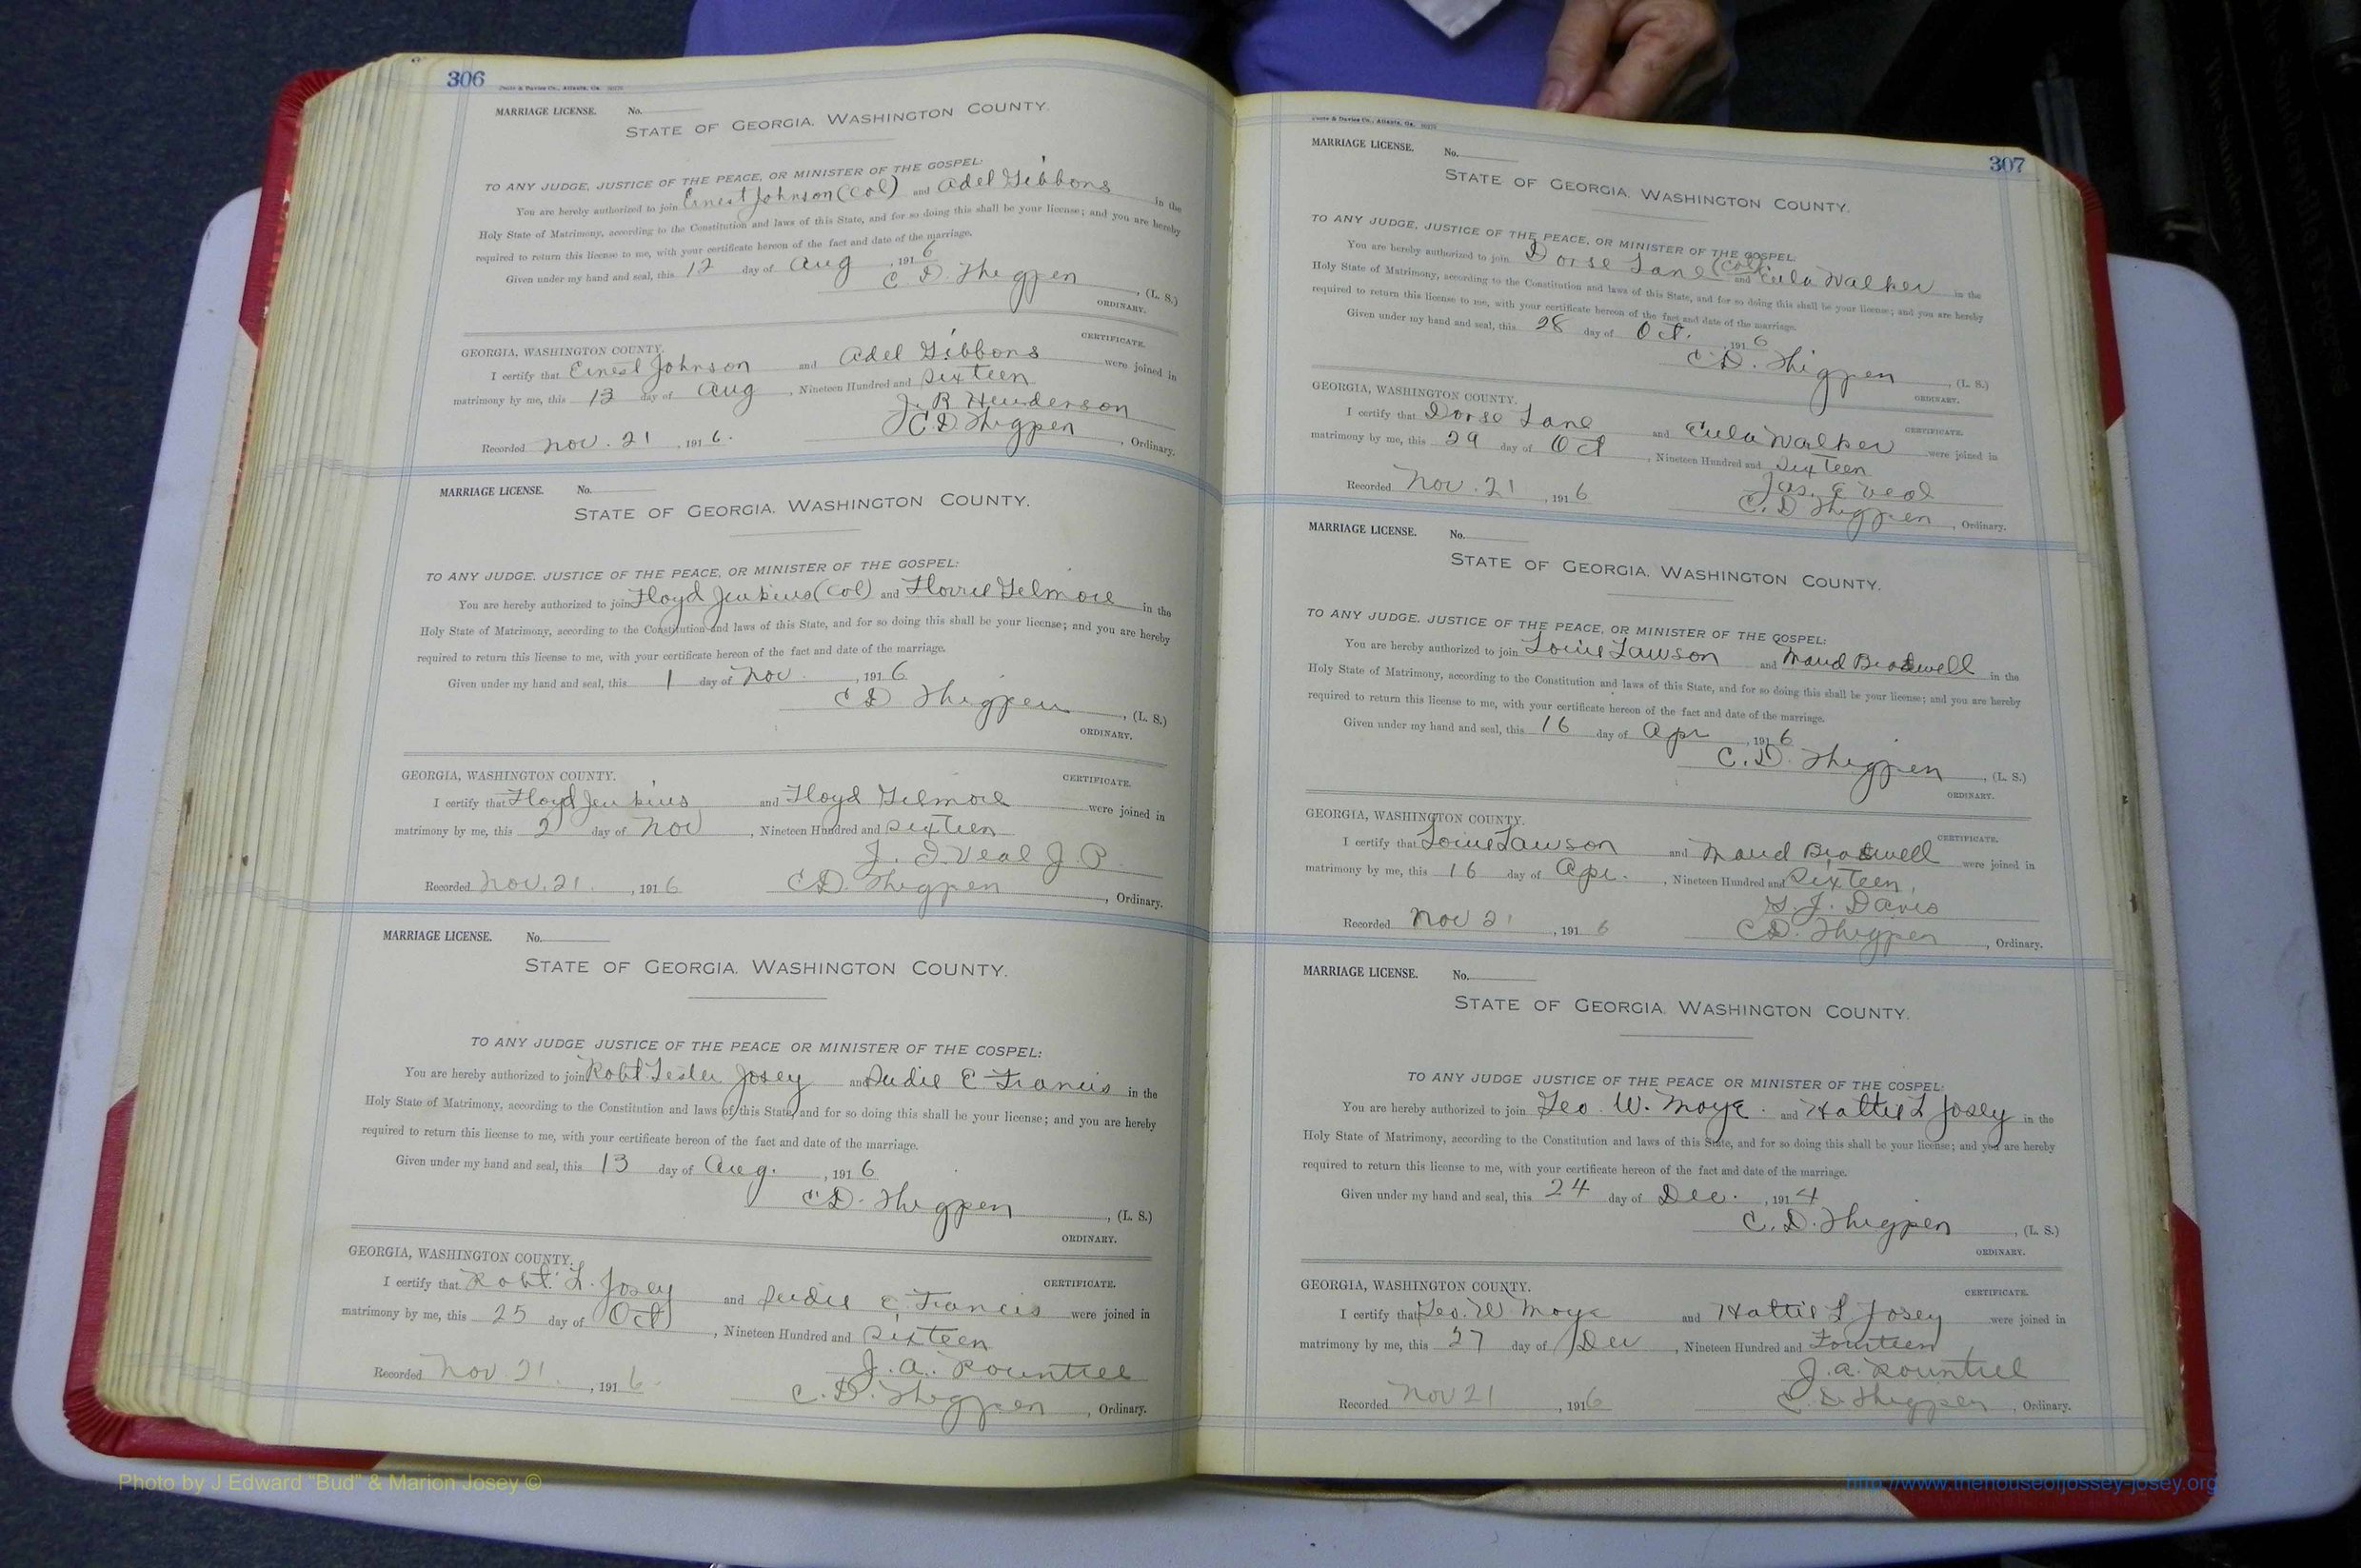 306
MARRIAGE LICENSE. No.
STATE OF GEORGIA, WASHINGTON COUNTY.
TO ANY JUDGE, JUSTICE OF THE PEACE, OR MINISTER OF THE GOSPEL:
You are hereby authorized to join Ernest Johnson (Col) and Adel Gibbons in the
Holy State of Matrimony, according to the Constitution and laws of this State, and for so doing this shall be your license; and you are hereby
required to return this license to me, with your certificate hereon of the fact and date of the marriage.
Given under my hand and seal, this 12 day of Aug, 1916
C. D. Thigpen, (L. S.)
ORDINARY.
CERTIFICATE.
GEORGIA, WASHINGTON COUNTY.
I certify that Ernest Johnson and Adel Gibbons were joined in
matrimony by me, this 13 day of Aug, Nineteen Hundred and Sixteen
J. R Henderson
Recorded Nov. 21, 1916. C D Thigpen, Ordinary.
MARRIAGE LICENSE. No.
STATE OF GEORGIA, WASHINGTON COUNTY.
TO ANY JUDGE, JUSTICE OF THE PEACE, OR MINISTER OF THE GOSPEL:
You are hereby authorized to join Floyd Jenkins (Col) and Florrie Gilmore in the
Holy State of Matrimony, according to the Constitution and laws of this State, and for so doing this shall be your license; and you are hereby
required to return this license to me, with your certificate hereon of the fact and date of the marriage.
Given under my hand and seal, this 1 day of Nov., 1916
C D Thigpen, (L. S.)
ORDINARY.
GEORGIA, WASHINGTON COUNTY. CERTIFICATE.
I certify that Floyd Jenkins and Floyd Gilmore were joined in
matrimony by me, this 2 day of Nov, Nineteen Hundred and Sixteen
J. I. Veal J. P.
Recorded Nov. 21., 1916 C D. Thigpen, Ordinary.
MARRIAGE LICENSE. No.
STATE OF GEORGIA, WASHINGTON COUNTY.
TO ANY JUDGE JUSTICE OF THE PEACE OR MINISTER OF THE GOSPEL:
You are hereby authorized to join Robt Lester Josey and Sudie E Francis in the
Holy State of Matrimony, according to the Constitution and laws of this State, and for so doing this shall be your license; and you are hereby
required to return this license to me, with your certificate hereon of the fact and date of the marriage.
Given under my hand and seal, this 13 day of Aug., 1916
C D. Thigpen, (L. S.)
ORDINARY.
GEORGIA, WASHINGTON COUNTY. CERTIFICATE.
I certify that Robt. L. Josey and Sudie E Francis were joined in
matrimony by me, this 25 day of Oct, Nineteen Hundred and Sixteen
J. A. Rountree
Recorded Nov. 21, 1916 C. D. Thigpen, Ordinary.
307
MARRIAGE LICENSE. No.
STATE OF GEORGIA, WASHINGTON COUNTY.
TO ANY JUDGE, JUSTICE OF THE PEACE, OR MINISTER OF THE GOSPEL.
You are hereby authorized to join Dorse Lane (Col) and Eula Walker in the
Holy State of Matrimony, according to the Constitution and laws of this State, and for so doing this shall be your license; and you are hereby
required to return this license to me, with your certificate hereon of the fact and date of the marriage.
Given under my hand and seal, this 28 day of Oct., 1916
C. D. Thigpen, (L. S.)
ORDINARY.
GEORGIA, WASHINGTON COUNTY. CERTIFICATE.
I certify that Dorse Lane and Eula Walker were joined in
matrimony by me, this 29 day of Oct, Nineteen Hundred and Sixteen
Jas. E Veal
Recorded Nov. 21, 1916 C. D Thigpen, Ordinary.
MARRIAGE LICENSE. No.
STATE OF GEORGIA, WASHINGTON COUNTY.
TO ANY JUDGE, JUSTICE OF THE PEACE, OR MINISTER OF THE GOSPEL:
You are hereby authorized to join Louie Lawson and Maud Bradwell in the
Holy State of Matrimony, according to the Constitution and laws of this State, and for so doing this shall be your license; and you are hereby
required to return this license to me, with your certificate hereon of the fact and date of the marriage.
Given under my hand and seal, this 16 day of Apr, 1916
C. D. Thigpen, (L. S.)
ORDINARY.
GEORGIA, WASHINGTON COUNTY. CERTIFICATE.
I certify that Louie Lawson and Maud Bradwell were joined in
matrimony by me, this 16 day of Apr., Nineteen Hundred and Sixteen,
S. J. Davis
Recorded Nov 21, 1916 C D. Thigpen, Ordinary.
MARRIAGE LICENSE. No.
STATE OF GEORGIA, WASHINGTON COUNTY.
TO ANY JUDGE JUSTICE OF THE PEACE OR MINISTER OF THE GOSPEL:
You are hereby authorized to join Geo. W. Moye. and Hattie L Josey in the
Holy State of Matrimony, according to the Constitution and laws of this State, and for so doing this shall be your license; and you are hereby
required to return this license to me, with your certificate hereon of the fact and date of the marriage.
Given under my hand and seal, this 24 day of Dec., 1914
C. D. Thigpen, (L. S.)
ORDINARY.
GEORGIA, WASHINGTON COUNTY. CERTIFICATE.
I certify that Geo. W Moye and Hattie L Josey were joined in
matrimony by me, this 27 day of Dec, Nineteen Hundred and Fourteen
J. A. Rountree
Recorded Nov 21, 1916 C. D. Thigpen, Ordinary.
Photo by J Edward "Bud" & Marion Josey ©
http://www.thehouseofjossey-josey.org